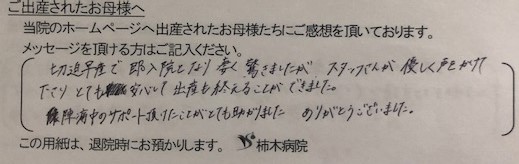 ご出産されたお母様へ
当院のホームページへ出産されたお母様たちにご感想を頂いております。
メッセージを頂ける方はご記入ください。
切迫早産で即入院となり 驚きましたが スタッフさんが優しく声をかけて
下さり とても安心して出産を終えることができました。
陣痛中のサポート頂けたことがとても助かりました ありがとうございました。
この用紙は、退院時にお預かりします。 柿木病院